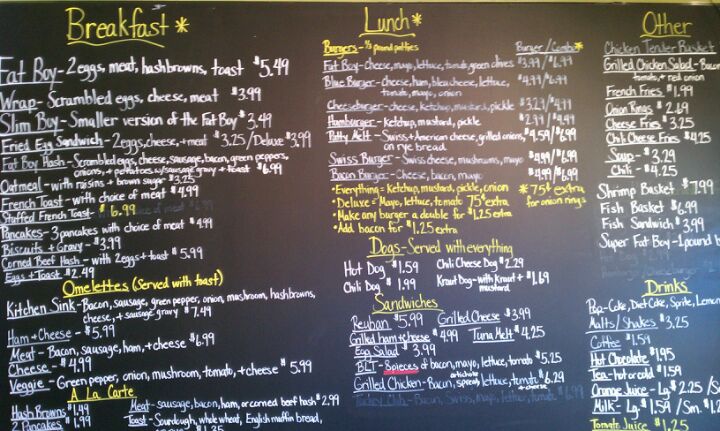 Breakfast *
Fat Boy - 2 eggs, meat, hashbrowns, toast $5.49
Wrap - Scrambled eggs, cheese, meat $3.99
Slim Boy - Smaller version of the Fat Boy $3.49
Fried Egg Sandwich - 2 eggs, cheese, + meat $3.25 / Deluxe $3.99
Fat Boy Hash - Scrambled eggs, cheese, sausage, bacon, green peppers,
onions, + potatoes w/sausage gravy + toast $6.99
Oatmeal - with raisins + brown sugar $3.25
French Toast - with choice of meat $4.99
Stuffed French Toast - $6.99
Pancakes - 3 pancakes with choice of meat $4.99
Biscuits + Gravy - $3.99
Corned Beef Hash - with 2 eggs + toast $5.99
Eggs + Toast $2.49
Omelettes (Served with toast)
Kitchen Sink - Bacon, sausage, green pepper, onion, mushroom, hashbrowns,
cheese, + sausage gravy $7.49
Ham + Cheese - $5.99
Meat - Bacon, sausage, ham, + cheese $6.99
Cheese - $4.99
Veggie - Green pepper, onion, mushroom, tomato, + cheese $5.99
A La Carte
Hash Browns $1.49
2 Pancakes $1.99
Meat - sausage, bacon, ham, or corned beef hash $2.99
Toast - Sourdough, whole wheat, English muffin, bread,
Lunch *
Burgers - 1/3 pound patties
Burger / Combo *
Fat Boy - cheese, mayo, lettuce, tomato, green olives $3.99 / $6.99
Blue Burger - cheese, ham, bleu cheese, lettuce, $4.99 / $6.99
tomato, mayo, onion
Cheeseburger - cheese, ketchup, mustard, pickle $3.29 / $4.99
Hamburger - ketchup, mustard, pickle $2.99 / $4.99
Patty Melt - Swiss + American cheese, grilled onions, $4.59 / $6.99
on rye bread
Swiss Burger - Swiss cheese, mushrooms, mayo $4.99 / $6.99
Bacon Burger - Cheese, bacon, mayo $4.99 / $6.99
• Everything = Ketchup, mustard, pickle, onion
• Deluxe = Mayo, lettuce, tomato 75¢ extra
• Make any burger a double for $1.25 extra
• Add bacon for $1.25 extra
* 75¢ extra
for onion rings
Dogs - Served with everything
Hot Dog $1.59
Chili Dog $1.99
Chili Cheese Dog $2.29
Kraut Dog - with Kraut + $1.69
mustard
Sandwiches
Reuban $5.99
Grilled Cheese $3.99
Grilled ham + cheese $4.99
Tuna Melt $4.25
Egg Salad $3.99
BLT - 8 pieces of bacon, mayo, lettuce, tomato $5.25
Grilled Chicken - Bacon, artichoke spread, lettuce, tomato $6.29
+ cheese
Turkey Club - Bacon, Swiss, mayo, lettuce, tomato $6.99
Other
Chicken Tender Basket
Grilled Chicken Salad - Bacon
tomato, + red onion
French Fries $1.99
Onion Rings $2.69
Cheese Fries $3.25
Chili Cheese Fries $4.25
Soup - $3.29
Chili - $4.25
Shrimp Basket $7.99
Fish Basket $6.99
Fish Sandwich $3.99
Super Fat Boy - 1 pound b
Drinks
Pop - Coke, Diet Coke, Sprite, Lemon
Malts / Shakes $3.25
Coffee $1.59
Hot Chocolate $1.95
Tea - hot or cold $1.59
Orange Juice - Lg. $2.25 / S
Milk - Lg. $1.59 / Sm. $1.
Tomato Juice $1.25